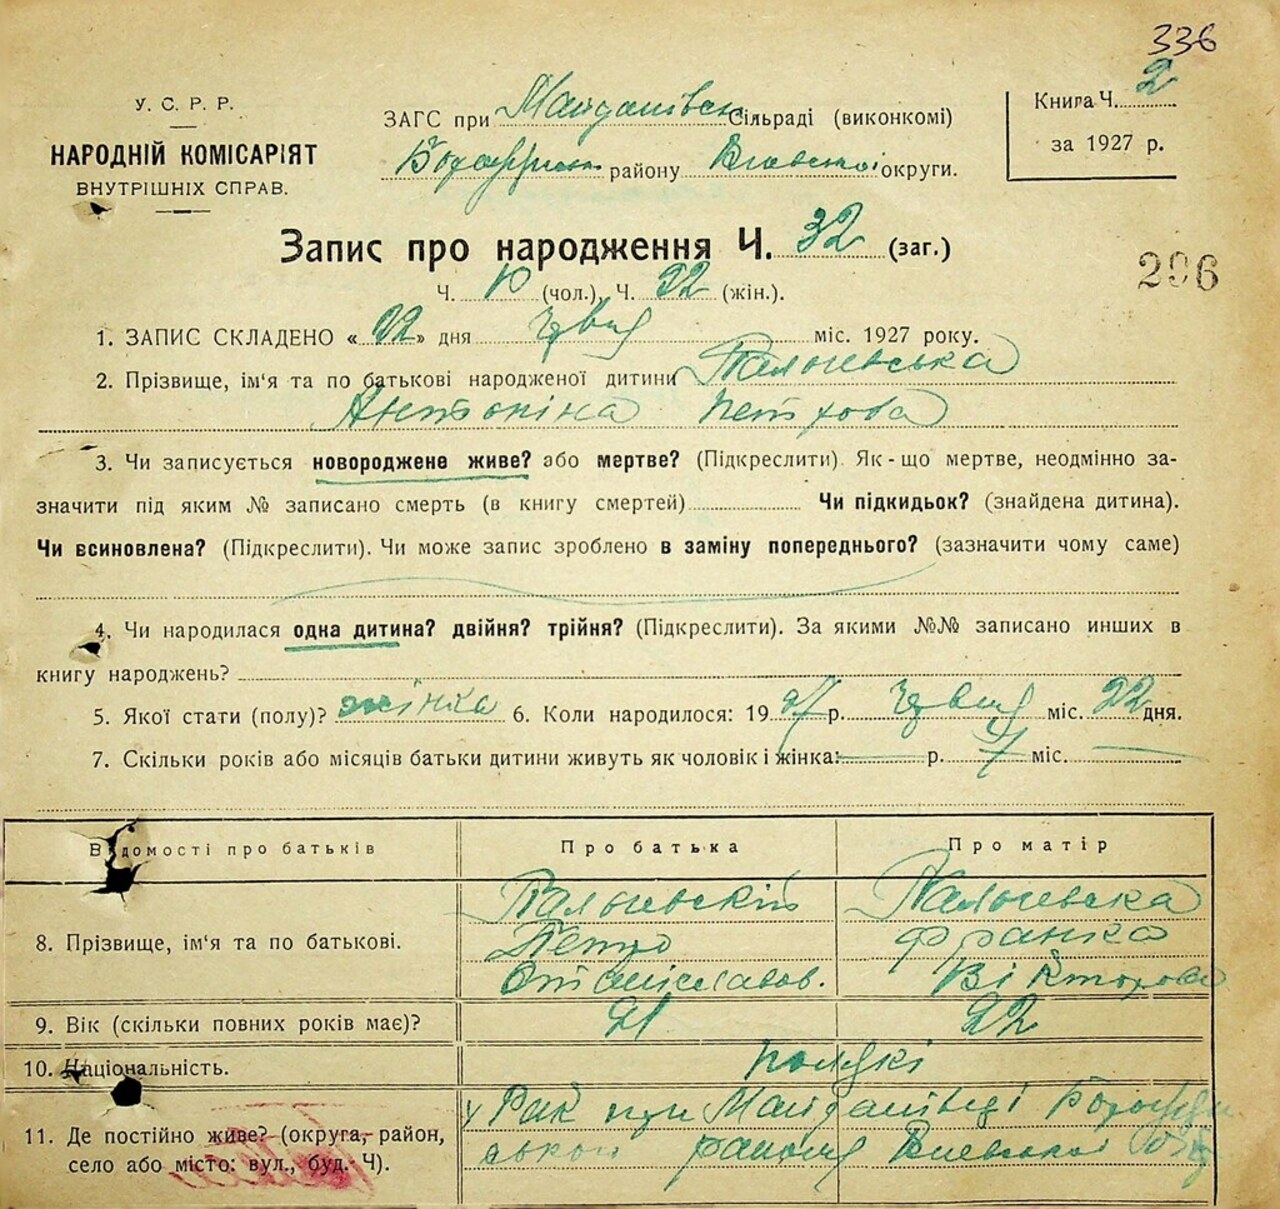 336
У. С. Р. Р.
НАРОДНІЙ КОМІСАРІЯТ
ВНУТРІШНІХ СПРАВ.
ЗАГС при Майданівск Сільраді (виконкомі)
району округи.
Книга Ч. 2
за 1927 р.
Запис про народження Ч. 32 (заг.)
296
Ч. 10 (чол.), Ч. 22 (жін.).
1. ЗАПИС СКЛАДЕНО « 22 » дня червня міс. 1927 року.
2. Прізвище, ім'я та по батькові народженої дитини
Антоніна Петрова
3. Чи записується новороджене живе? або мертве? (Підкреслити). Як-що мертве, неодмінно за-
значити під яким № записано смерть (в книгу смертей) Чи підкидьок? (знайдена дитина).
Чи всиновлена? (Підкреслити). Чи може запис зроблено в заміну попереднього? (зазначити чому саме)
4. Чи народилася одна дитина? двійня? трійня? (Підкреслити). За якими №№ записано инших в
книгу народжень?
5. Якої стати (полу)? жінка 6. Коли народилося: 1927 р. червня міс. 22 дня.
7. Скільки років або місяців батьки дитини живуть як чоловік і жінка: р. міс.
Відомості про батьків Про батька Про матір
8. Прізвище, ім'я та по батькові.
Петро Франка
Станіславов. Вікторова
9. Вік (скільки повних років має)? 21 22
10. Національність. поляки
11. Де постійно живе? (округа, район,
село або місто: вул., буд. Ч).
району